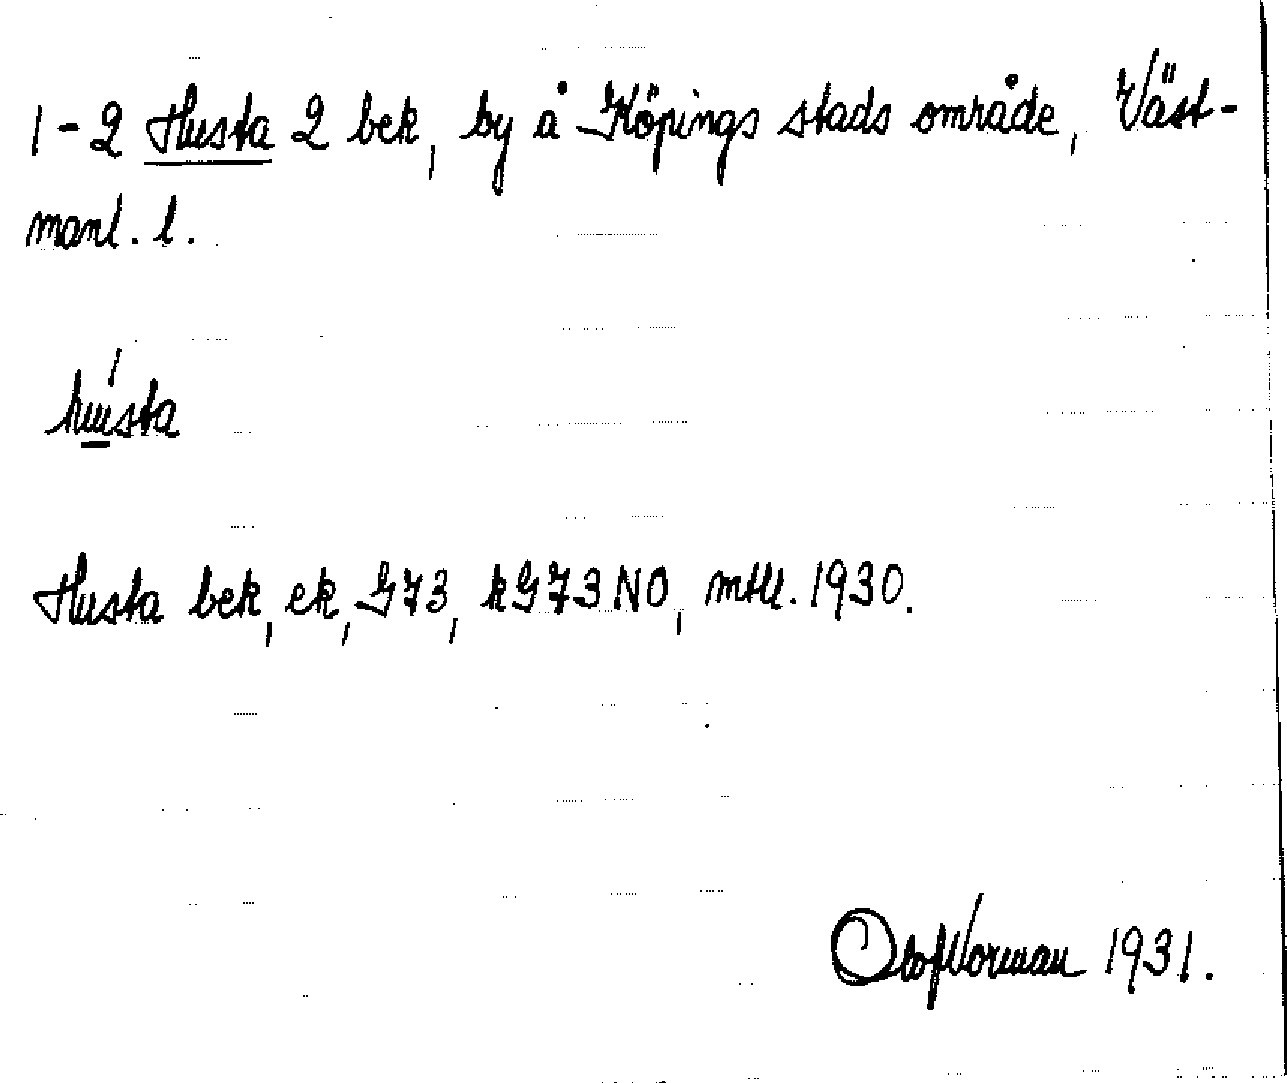 1-2 Husta 2 bek, by å Köpings stads område, Väst-
manl. l.
Husta bek, ek, G73, kG73NO, mtll. 1930.
Olof Norman 1931.